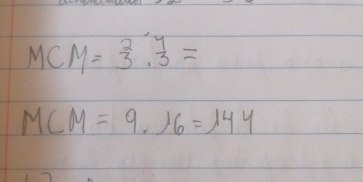 MCM = 2/3 . 4/3 =
MCM = 9 . 16 = 144